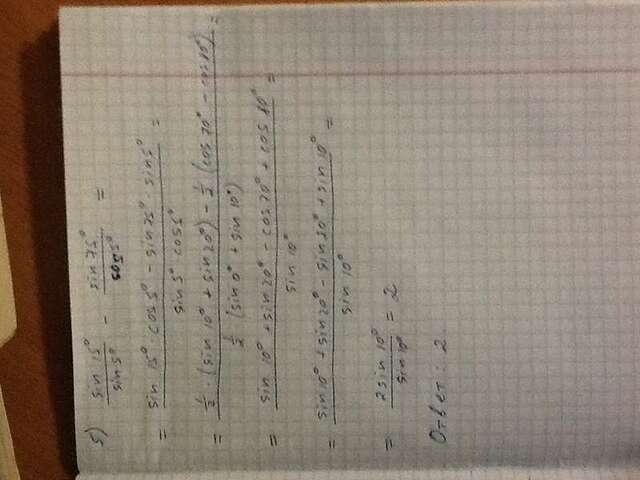 5) sin 15° / sin 5° - sin 75° / cos 5° =
= sin 15° · cos 5° - sin 75° · sin 5° / sin 5° cos 5° =
= 1/2 · (sin 10° + sin 20°) - 1/2 (cos 70° - cos 80°) / 1/2 (sin 0° + sin 10°) =
= sin 10° + sin 20° - cos 70° + cos 80° / sin 10° =
= sin 10° + sin 20° - sin 20° + sin 10° / sin 10° =
= 2 sin 10° / sin 10° = 2
Ответ: 2.